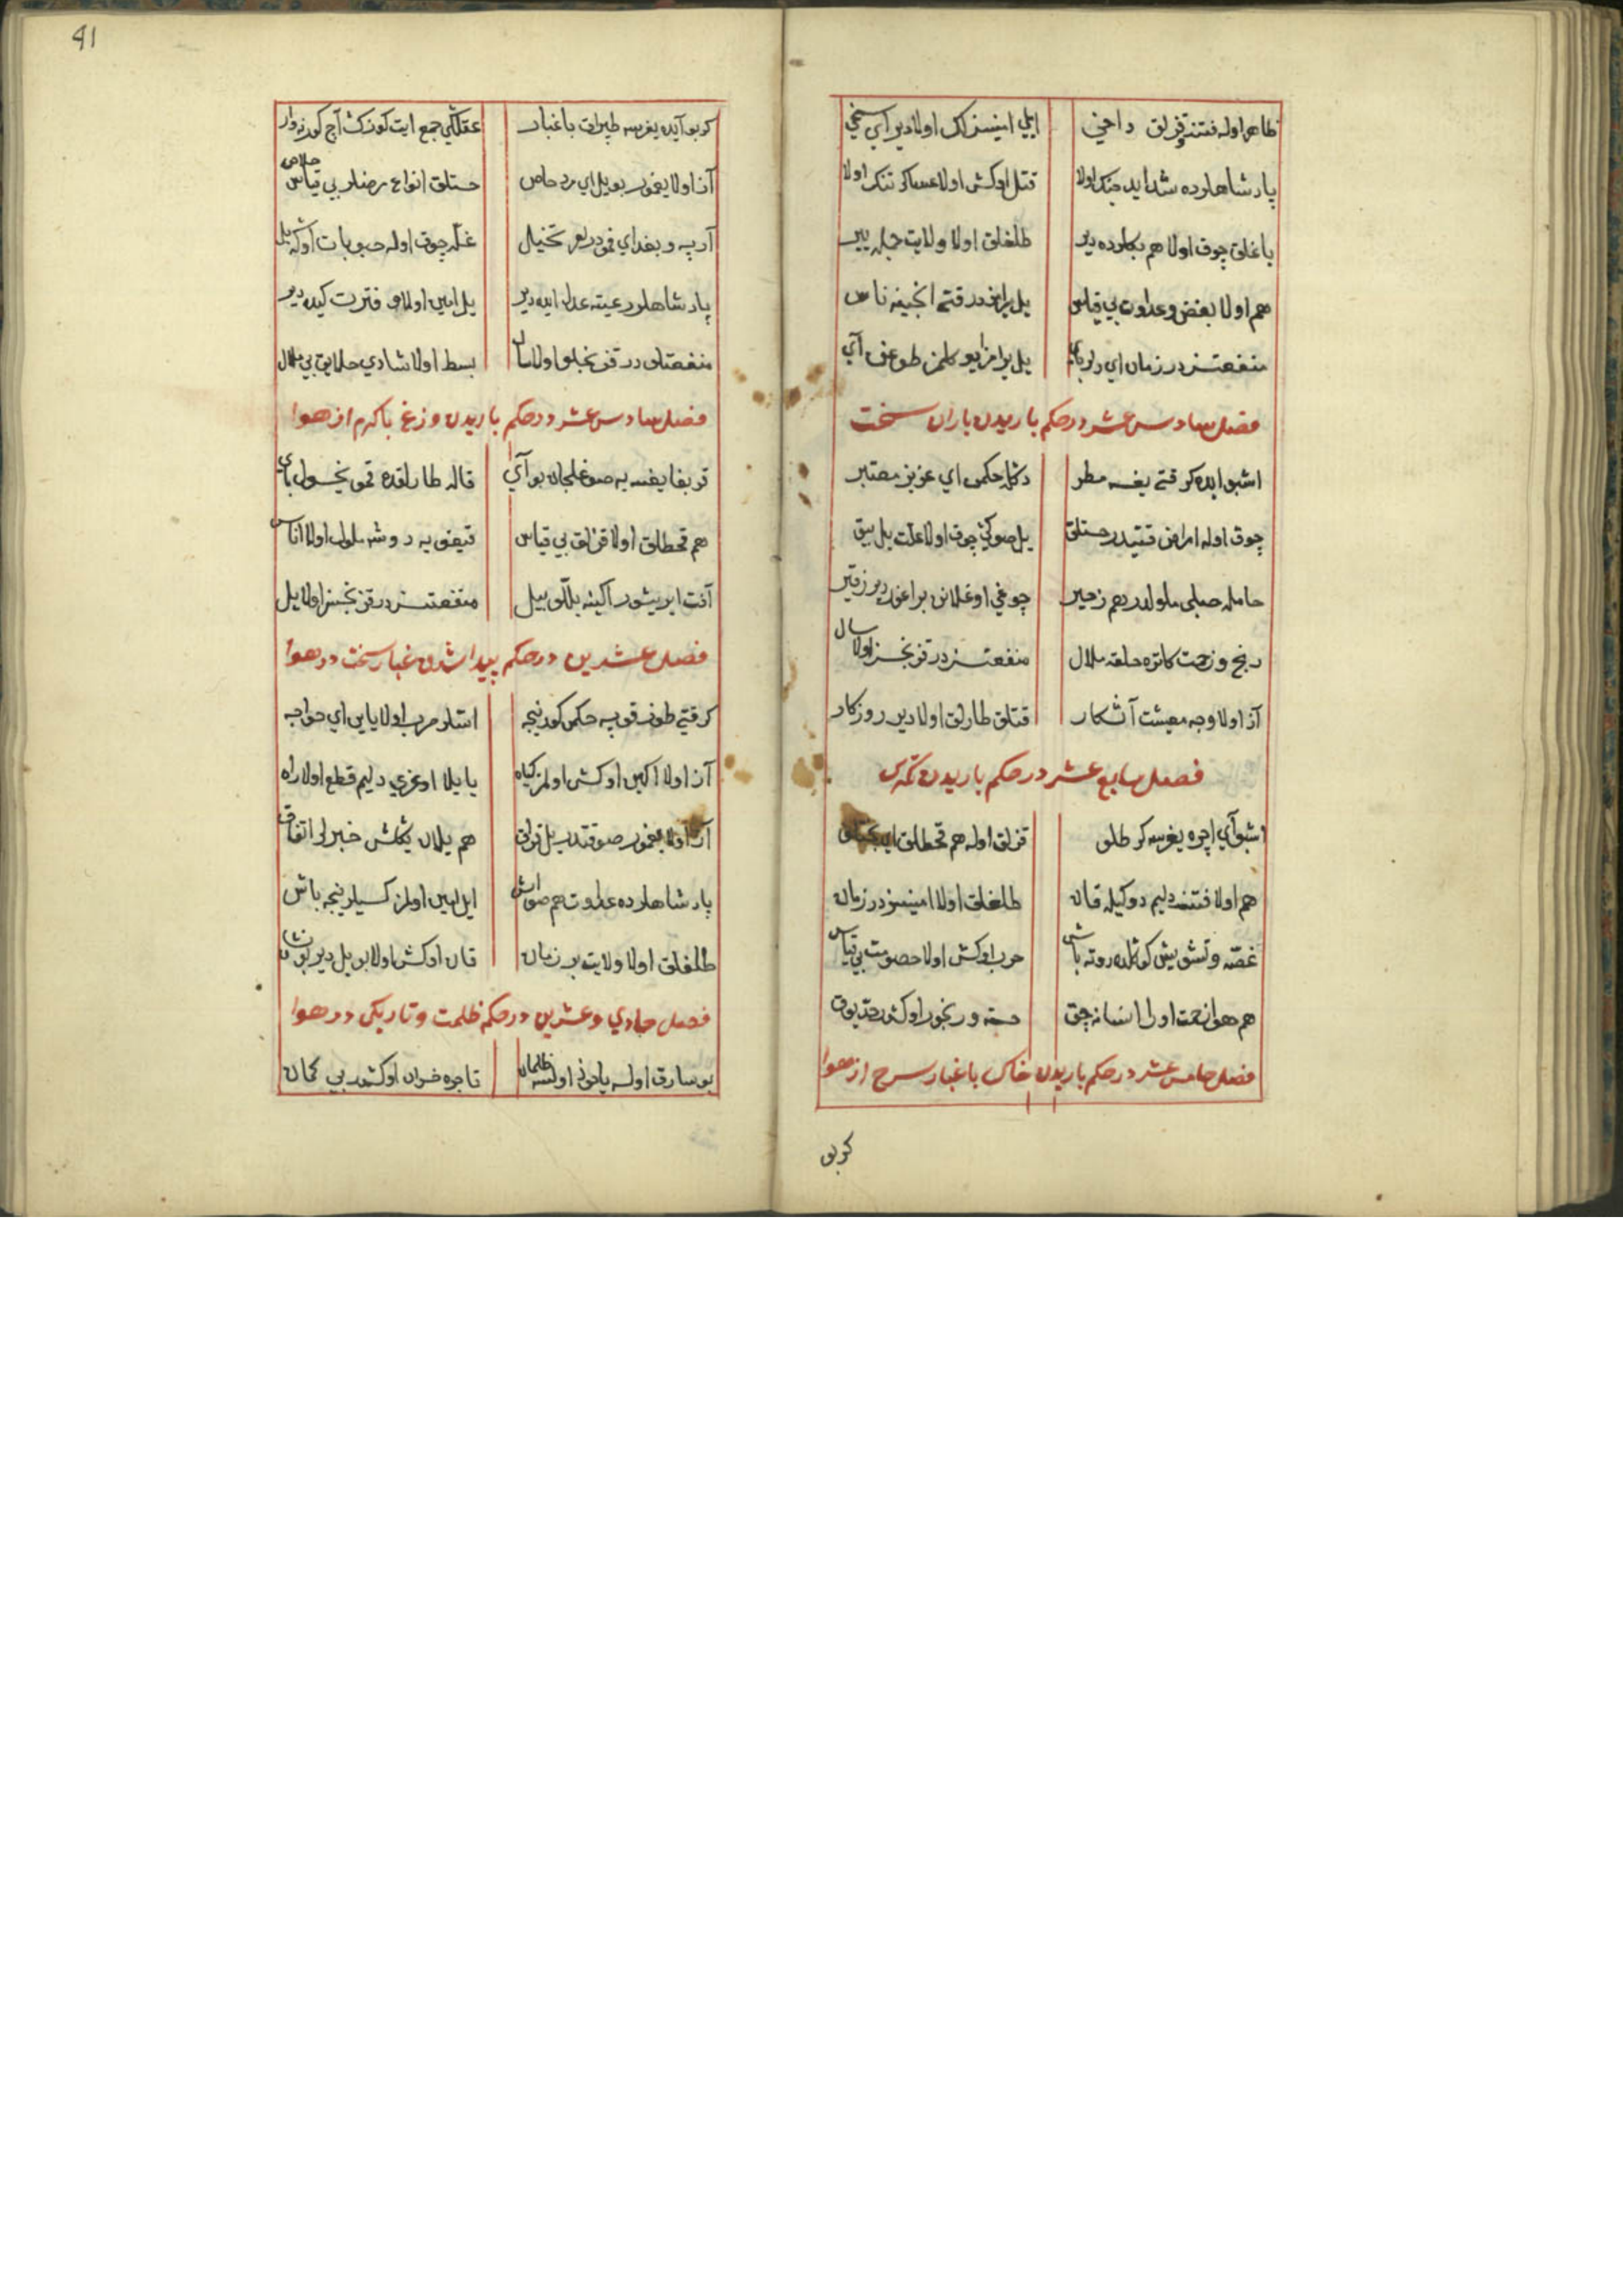 ظاهر اوله فتنه و قزلق داخی ایلی امینسزلک اولا دیر ای سخی
پادشاهلرده شداید جنک اولا قتل اوکش اولا عساکر تنک اولا
باغلق چوق اولا هم بکلرده دیر طلغلق اولا ولایت جمله ییر
هم اولا بغض و عداوت بی قیاس یل یرامزدر قتی انجینه ناس
منفعتسزدر زمان ای دلربای یل یرامز ایو کلمز طوغن آی
فصل سادس عشر در حکم باریدن باران سخت
اشبو ایده کر قتی یغسه مطر دکله حکمن ای عزیز معتبر
چوق اوله امراض قتیدر خستلق یل صوکی چوق اولا علت بل بیق
حامله حملی ملولدر هم زحیر چوغی اوغلانن براغور دیر
رنج و زحمت کاتره خلقه ملال منفعتسزدر قز بخسز اولا سال
آز اولا وجه معیشت آشکار قتلق طارلق اولا دیر روزکار
فصل سابع عشر در حکم باریدن تکرک
اشبو آی اچره یغرسه کر طلو قزلق اوله هم قحطلق
هم اولا فتنه دلیم دوکیله قان طلغلق اولا امینسزدر زمان
غصه و تشویش کوکلده روته باش حرب اوکش اولا خصومت بی قیاس
هم هوا زحمت اولا انسانه چق خسته و رنجور اوکش حدّ یوق
فصل خامس عشر در حکم باریدن خاک با غبار سرخ از هوا
کر بو
41
کر بو آیده یغرسه طپراق با غبار عقلکی جمع ایت کوزک آچ کور نه وار
آز اولا یغمور بو یل ای مرد خاص خستلق انواع مرضلر بی قیاس خلاص
آرپه و بغدای قمودرلو تخیال غله چوق اوله حبوبات اوکش بل
پادشاهلر رعیته عدل ایده دیر یل امین اولا فترت کیده دیر
منفعتلی در قز بخلو اولا سال بسط اولا شادی خلایق بی ملال
فصل سادس عشر در حکم باریدن وزغ با کرم از هوا
قوربغا یغسه یه صوغلجان بو آی قاله طارلقده قمو یخسول بای
هم قحطلق اولا قزلق بی قیاس قیغویه دوشه ملول اولا اناس
آفت ایریشور اکینه بللو بیل منفعتسزدر قز بخسز اولا یل
فصل عشرین در حکم پیدا شدن غبار سخت در هوا
کر قتی طوز قوپه حکمی کور نیجه اسلر حرب اولا یاین ای خواجه
آز اولا اکین اوکش اولمز کیاه یایلا اوغری دلیم قطع اولا راه
آز اولا یغمور صو قتدر یل قراق هم یلان یکلش خبرلر اتفاق
پادشاهلرده عداوت هم صواش ایل امین اولمز کسیلر نیجه باش
طلغلق اولا ولایت بر زمان قان اوکش اولا بو یل دیر بو نشان
فصل حادی و عشرین در حکم ظلمت و تاریکی در هوا
بو سارق اوله یاخوذ اولسه ظلمان تاجره خسران اوکشدر بی کمان